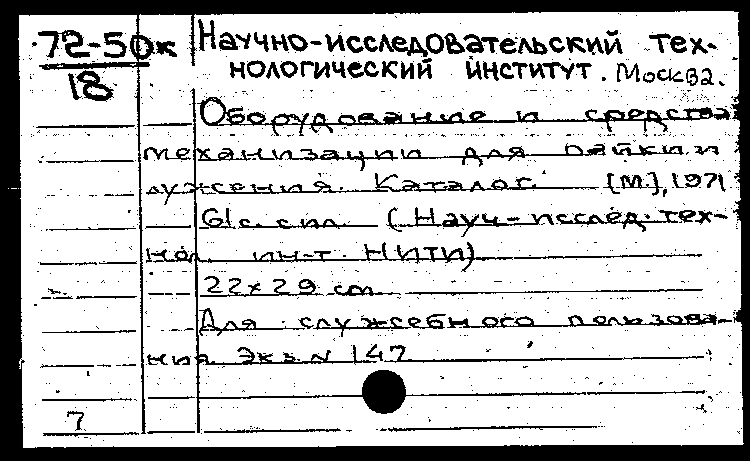 72-50к Научно-исследовательский тех-
18 нологический институт. Москва.
Оборудование и средства
механизации для пайки и
лужения. Каталог. [М.], 1971
61 с. с ил. (Науч-исслед. тех-
нол. ин-т. НИТИ)
22x29 cm
Для служебного пользова-
ния. Экз. N 147
7